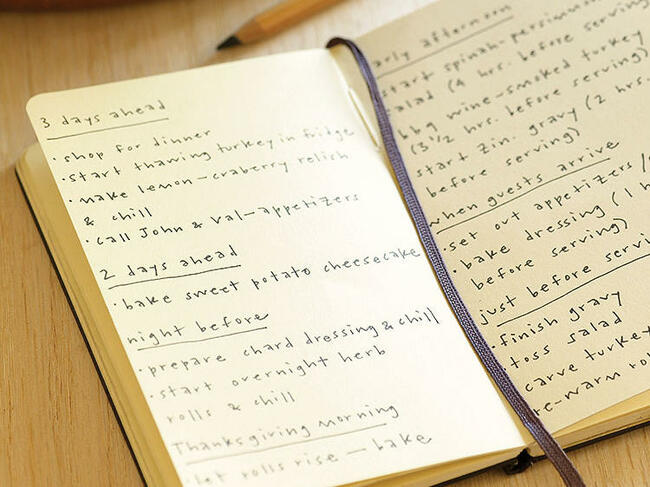 3 days ahead
· shop for dinner
· start thawing turkey in fridge
· make lemon-craberry relish
& chill
· call John & Val-appetizers
2 days ahead
· bake sweet potato cheesecake
night before
· prepare chard dressing & chill
· start overnight herb
rolls & chill
Thanksgiving morning
· let rolls rise — bake
early afternoon
start spinah-persimmon
salad (4 hrs. before serving)
bbq wine-smoked turkey
(3 1/2 hrs. before serving)
start zin. gravy (2 hrs.
before serving)
when guests arrive
· set out appetizers /
· bake dressing (1 h
before serving)
just before serving
· finish gravy
· toss salad
carve turkey
re-warm rolls